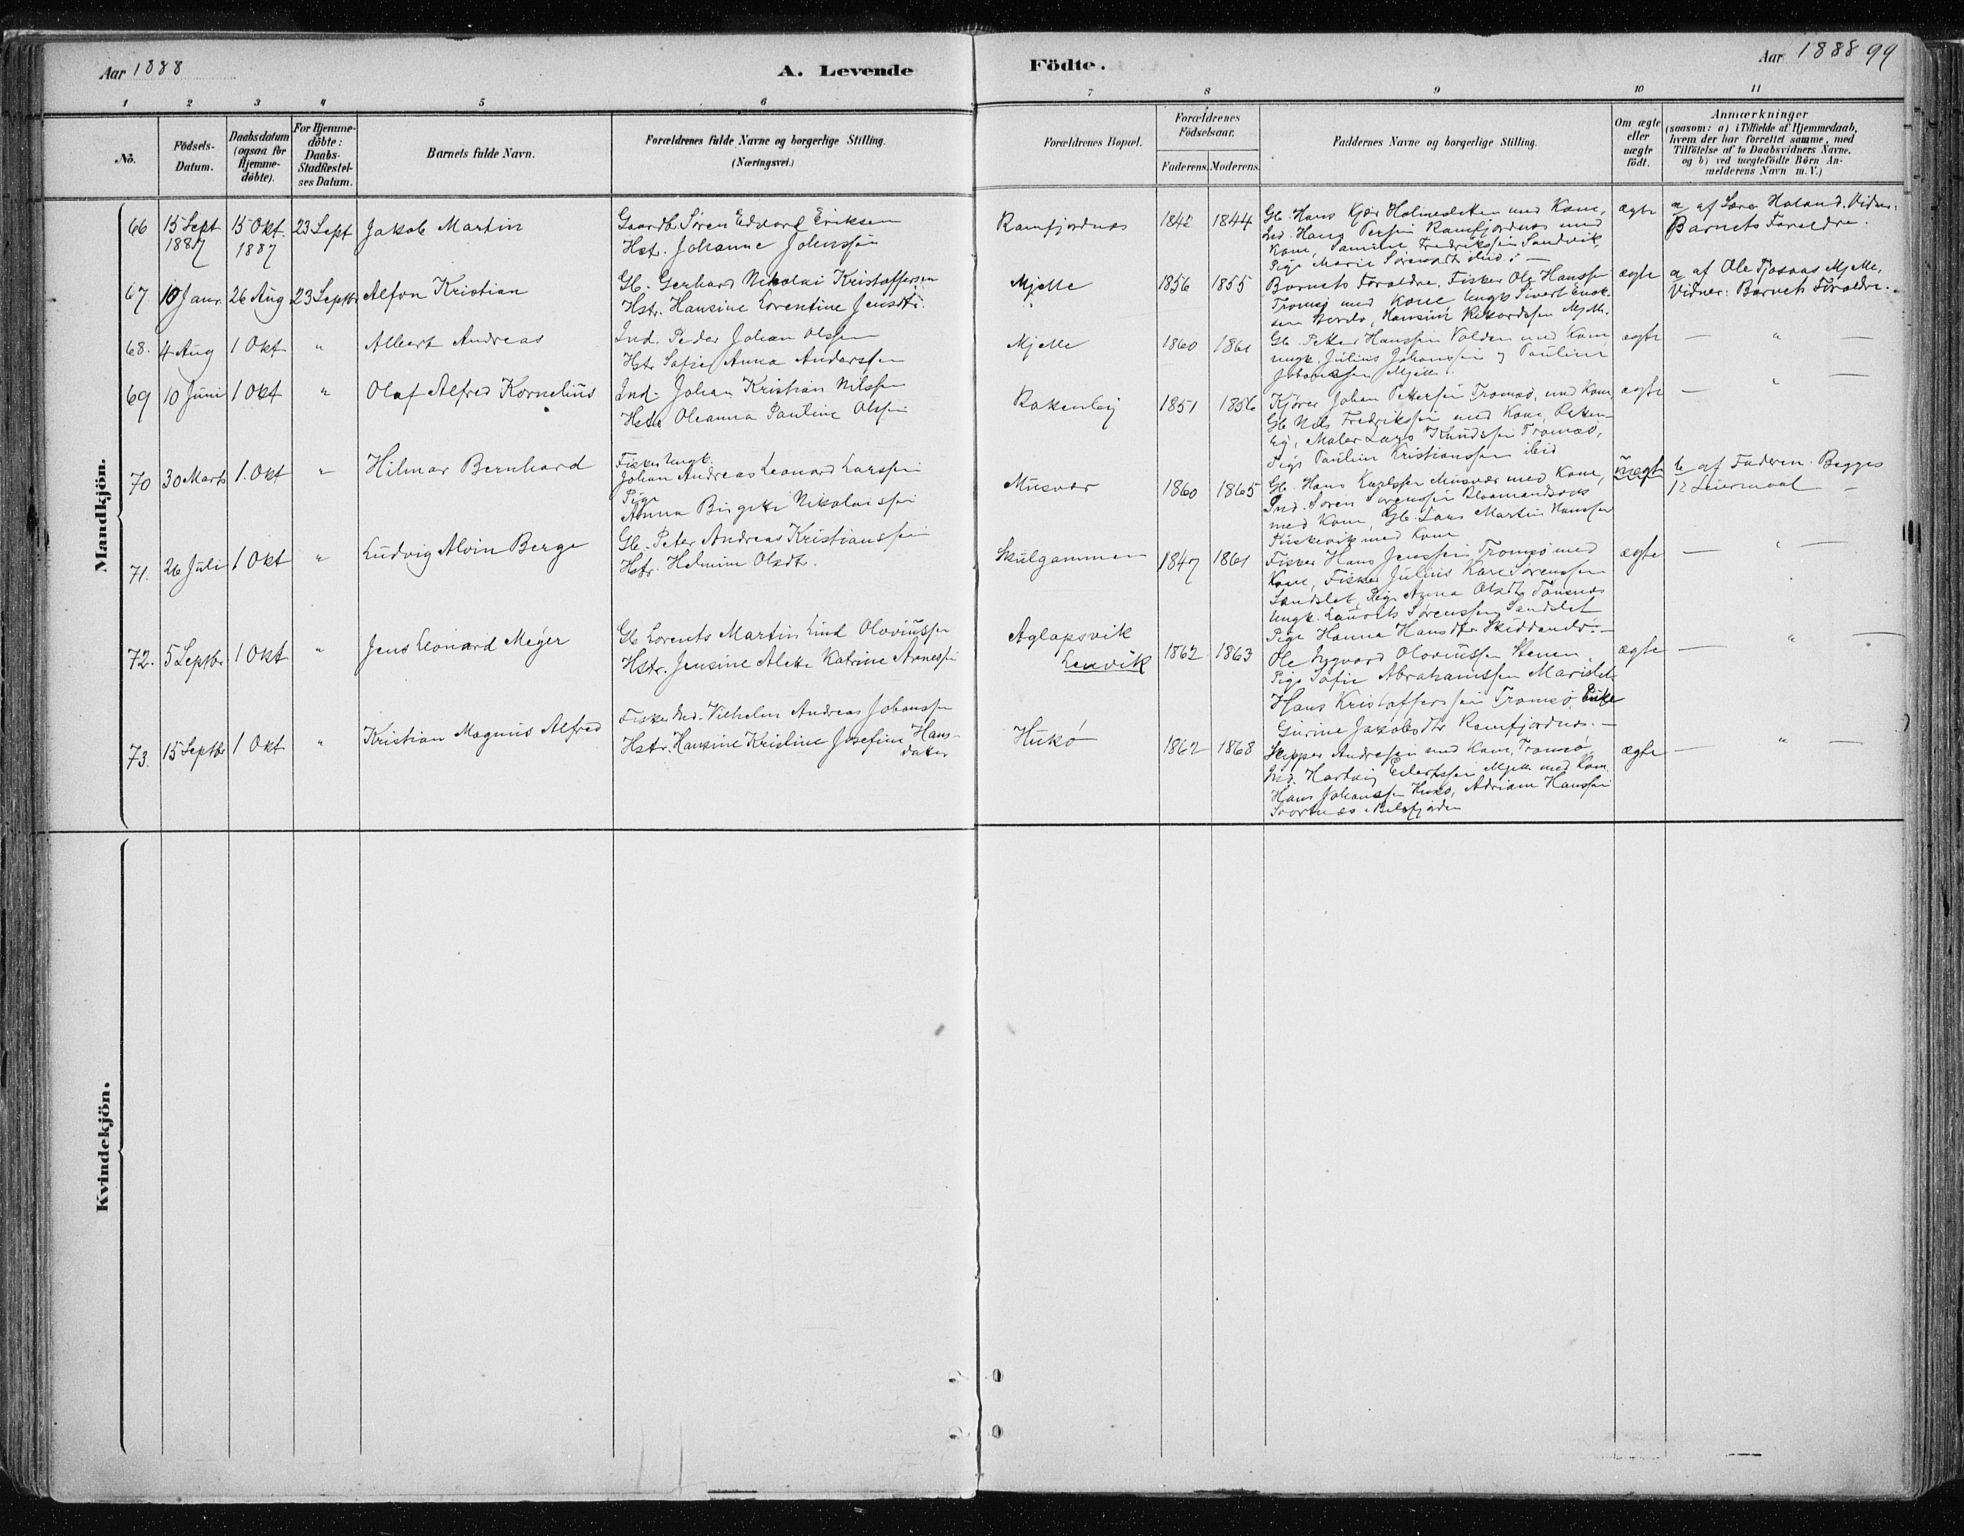 Aar 1888
A. Levende
Födte.
Aar 1888 99
1 2 3 4 5 6 7 8 9 10 11
No.
Födsels-
Datum.
Daabsdatum
(ogsaa for
Hjemme-
döbte).
For Hjemme-
döbte:
Daabs-
Stadfæstel-
ses Datum.
Barnets fulde Navn.
Forældrenes fulde Navne og borgerlige Stilling.
(Næringsvei.)
Forældrenes Bopæl.
Forældrenes
Födselsaar.
Faderens. Moderens.
Faddernes Navne og borgerlige Stilling.
Om ægte
eller
uægte
födt.
Anmærkninger
(saasom: a) i Tilfælde af Hjemmedaab,
hvem der har forrettet samme, med
Tilföielse af to Daabsvidners Navne,
og b) ved uægtefödte Börn An-
melderens Navn m. V.)
Mandkjön.
66 15 Sept 1887 15 Okt. 1887 23 Sept Jakob Martin
Gaardb. Søren Edvard Eriksen
Hst. Johanne Johnssen
Ramfjordnæs 1842 1844
Gb. Hans Kjær Holmesletten med Kone,
Ind. Hans Persen Ramfjordnæs med
Kone, Samuel Fredrikssen Sandvik,
Pige Marie ibid: —
ægte
a af Holand. Vidner:
Barnets Foreldre.
67 10 Janr. 26 Aug 23 Septbr Alfon Kristian
Gb. Gerhard Nikolai Kristoffersen
Hstr. Hansine Lorentine Jensdtr.
Mjelle 1856 1855
Barnets Foreldre, Fisker Ole Hanssen
Tromsø med Kone Ungk. Sivert Enok-
sen Hansine Rikardsen Mjelle.
ægte
a af Ole Mjelle,
Vidner: Barnets Foreldre.
68. 4 Aug 1 Okt " Albert Andreas
Ind. Peder Johan Olssen
Hst Sofie Anna Anderssen
Mjelle 1860 1861
Gb. Petter Hanssen Volden med Kone
Ungk. Julius Johanssen og Pauline
Johanssen Mjelle.
ægte — " —
69 10 Juni 1 Okt " Olaf Alfred Kornelius
Ind. Johan Kristian Nilssen
Hstr Oleanna Pauline Olssen
Bakenby 1851 1856
Kjører Johan Pettersen Tromsø, med Kone,
Gb. Nils Fredrikssen med Kone,
Maler Lars Knudssen Tromsø,
Pige Pauline Kristianssen ibid
ægte — " —
70 30 Marts 1. Okt " Hilmar Bernhard
Fisker Ungk.
Johan Andreas Leonard Larssen
Pige
Anna Birgitte Nikolaissen
Musvær 1860 1865
Gb. Hans Karlssen Musvær med Kone,
Ind. Søren Sørenssen Blaamandsnæs
med Kone, Gb. Lars Martin Hanssen
med Kone
uægte
b af Faderen. Begges
1ste Leiermaal —
71. 26 Juli 1 Okt " Ludvig Alvin Berge
Gb. Peter Andreas Kristianssen
Hstr. Helmine Olsdtr.
Skulgammen 1847 1861
Fisker Hans Jenssen Tromsø med
Kone, Fisker Julius Kare Sørenssen
Sandslet, Pige Anna Olsdtr Tønsnæs
Ungk. Laurits Sørenssen Sandslet
Pige Hanna Hansdtr. —
ægte — " —
72. 5 Septbr. 1 Okt " Jens Leonard Meyer
Gb Lorents Martin Lind Oloviussen
Hstr. Jensine Alette Katrine Arnessen
Aglapsvik
Lenvik 1862 1863
Ole Ingvard Oloviussen Stenen,
Pige Sofie Abrahamssen
Hans Kristofferssen Tromsø, Enke
Gurine Jakobsdtr Ramfjordnæs. —
ægte — " —
73. 15 Septbr 1 Okt " Kristian Magnus Alfred
Fisker Ind. Vilhelm Andreas Johanssen
Hstr. Hansine Kristine Josefine Hans-
datter
Hukø 1862 1868
Skipper Andressen med Kone, Tromsø,
Ind. Hartvig Eilertssen Mjelle med Kone,
Hans Johanssen Hukø, Adrian Hanssen
Svartnæs i Balsfjorden
ægte — " —
Kvindekjön.